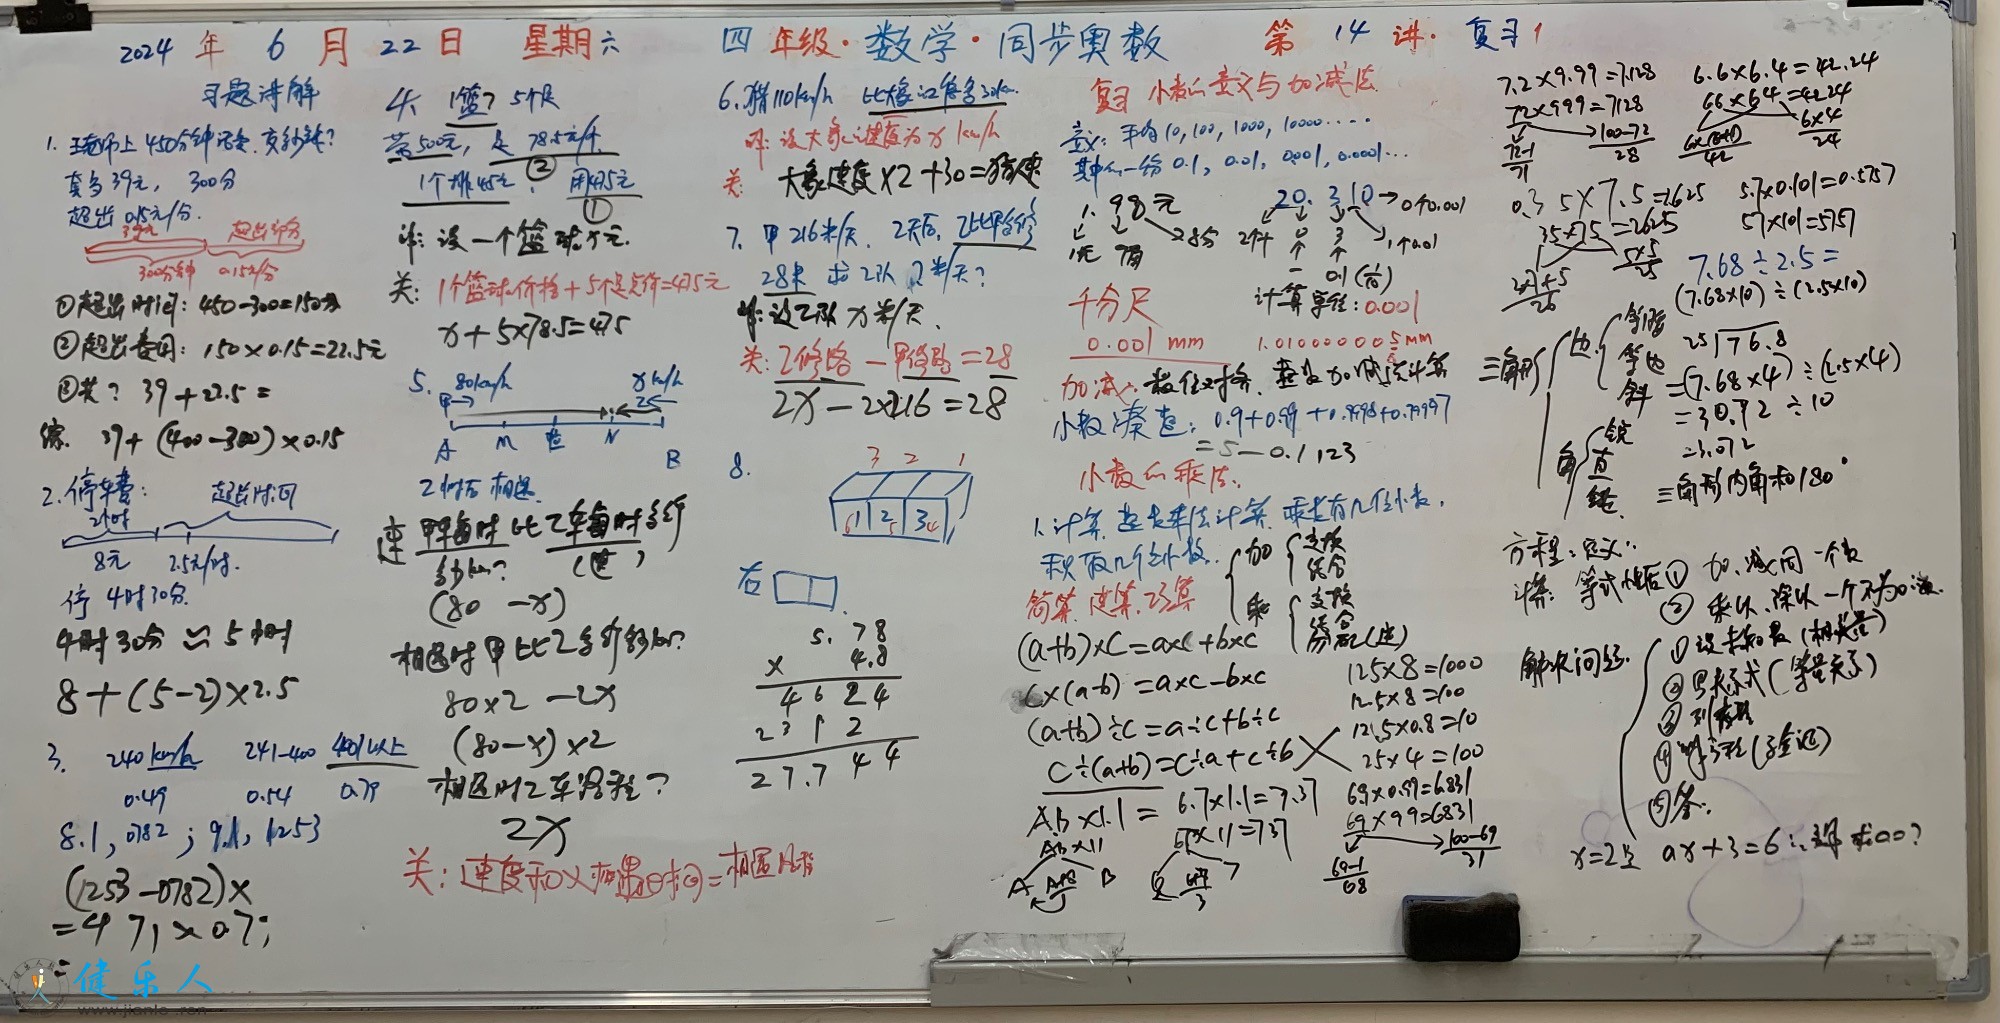 2024 年 6 月 22 日 星期六 四年级·数学·同步奥数 第 14 讲· 复习1
习题讲解
1. 王老师上450分钟话费
39元, 300分
超出 0.15元/分.
39元 超出部分
300分钟 0.15元/分
①超出时间: 450-300=150分
②超出费用: 150×0.15=22.5元
③共? 39+22.5=
综. 39+(400-300)×0.15
2. 停车费: 超出时间
2小时
8元 2.5元/时.
停 4时30分.
4时30分 ≈ 5小时
8+(5-2)×2.5
3. 240km/h 241-400 401以上
0.49 0.54 0.79
8.1, 0782 ; 9.1, 1253
(1253-0782)×
=471×0.7;
=
4. 1篮? 5个足
带500元, 足 78.5元/个.
②
1个排45元, 用475元
①
解: 设一个篮球x元.
关: 1个篮球价格+5个足总价=475元
x+5×78.5=475
5. 80km/h x km/h
甲→ 乙←
A M N B
2小时后相遇.
速 甲车每时比乙车每时多行
多少km? (速)
(80-x)
相遇时甲比乙多行多少km?
80×2-2x
(80-x)×2
相遇时乙车路程?
2x
关: 速度和×相遇时间=相遇路程
6. 猎110km/h 比大象2倍多30km.
解: 设大象速度为x km/h
关: 大象速度×2+30=猎速
7. 甲216米/天. 2天后, 乙比甲多修
28米 求乙队?米/天?
解: 设乙队x米/天.
关: 乙修路-甲修路=28
2x-2×216=28
8.
3 2 1
1 2 3
右
5.78
× 4.8
4624
2312
27.744
复习 小数的意义与加减法
意义: 平均10, 100, 1000, 10000·····
其中的一份 0.1, 0.01, 0.001, 0.0001···
1.98元 20.310→0个0.001
1元 9角 8分 2个十 0 3 1个0.01
一 0.1
千分尺 计算单位: 0.001
0.001 mm 1.010000005mm
加减: 数位对齐, 整数加减法计算
小数凑整: 0.9+0.99+0.9998+0.99997
=5-0.1123
小数的乘法.
1. 计算 整数乘法计算. 乘数有几位小数,
积有几位小数.
简算 速算 巧算
加 交换 结合
乘 交换 结合 分配(逆)
(a+b)×c=a×c+b×c
c×(a-b)=a×c-b×c
(a+b)÷c=a÷c+b÷c
c÷(a+b)=c÷a+c÷b ×
125×8=1000
12.5×8=100
12.5×0.8=10
25×4=100
A.B×1.1= 6.7×1.1=7.37
AB×11 67×11=737
A A+B B
6 6+7 7
3
69×0.99=6831
69×99=6831
69-1 100-69
68 31
7.2×9.99=7.128 6.6×6.4=42.24
72×999=7128 66×64=4224
72-1 100-72 6×(6+1) 6×4
71 28 42 24
0.35×7.5=2.625 5.7×0.101=0.5757
35×75=2625 57×101=5757
5×5
25
26
7.68÷2.5=
(7.68×10)÷(2.5×10)
25 76.8
=(7.68×4)÷(2.5×4)
=30.72÷10
=3.072
三角形 边 等腰
等边
角 锐
直
钝
三角形内角和180°
方程: 定义:
计算: 等式性质① 加.减同一个数
② 乘以.除以一个不为0的数.
解决问题.
①设未知数
②写关系式(等量关系)
③列方程
④解方程(检验)
⑤答.
x=2是 ax+3=6的解 求a=?
健乐人
www.jianle